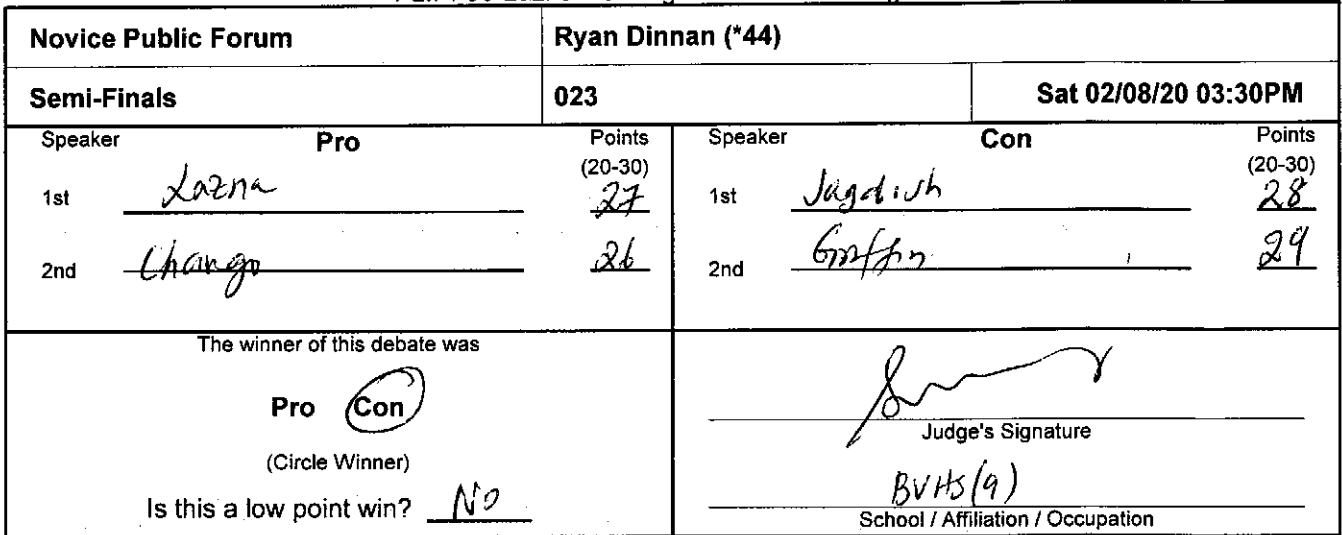 Novice Public Forum Ryan Dinnan (*44)
Semi-Finals 023 Sat 02/08/20 03:30PM
Speaker Pro Points Speaker Con Points
(20-30) (20-30)
1st Lazna 27 1st Jagdish 28
2nd Chango 26 2nd Griffin 29
The winner of this debate was
Pro Con
(Circle Winner)
Is this a low point win? No
Judge's Signature
BVHS(9)
School / Affiliation / Occupation